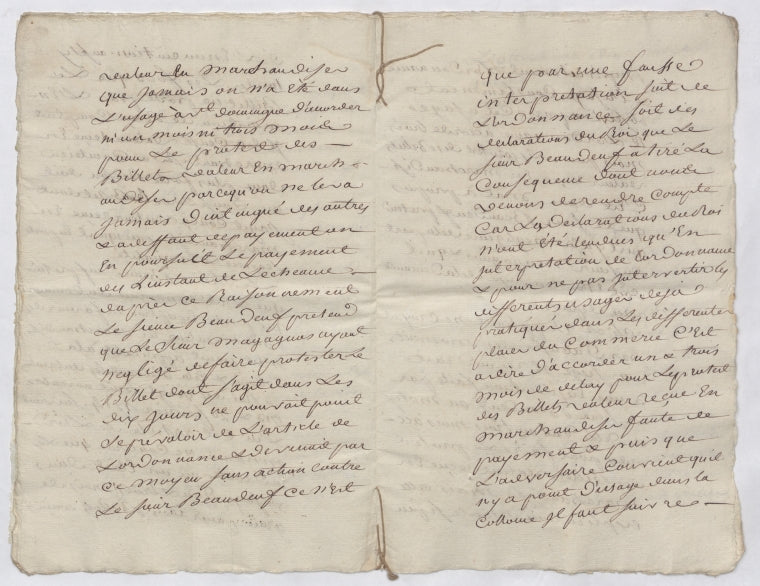 valeur En marchandises
que jamais on n'a Eté dans
L'usage à St. domingue d'accorder
ni un mois ne trois mois
pour Le protest des
Billets valeur En march
andises parcequ'on ne les a
jamais distingué des autres
& a deffaut de payement on
En poursuit Le payement
des L'instant de L'echeance
dapres ce Raisonnement
Le sieur Beaudeuf pretend
que Le sieur magagnos ayant
negligé de faire protester Le
Billet dont s'agit dans Les
dix jours ne pouvait point
se prévaloir de L'article de
Lordonnance & devenait par
ce moyen sans action contre
Le sieur Beaudeuf ce n'Est
que par une fausse
interpretation soit de
Lordonnance soit des
declarations du Roi que Le
sieur Beaudeuf a tiré La
Consequence dont nous
venons de rendre Compte
Car Les déclarations du Roi
n'ont Eté rendues qu'En
interpretation de Lordonnance
& pour ne pas intervertir les
differents usages deja
pratiquer dans Les differentes
places du Commerce C'Est
a dire d'accorder un & trois
mois de delay pour Le protest
des Billets valeur reçue En
marchandises faute de
payement & puis que
L'adversaire Convient qu'il
n'y a point d'usage dans la
Collonie il faut suivre